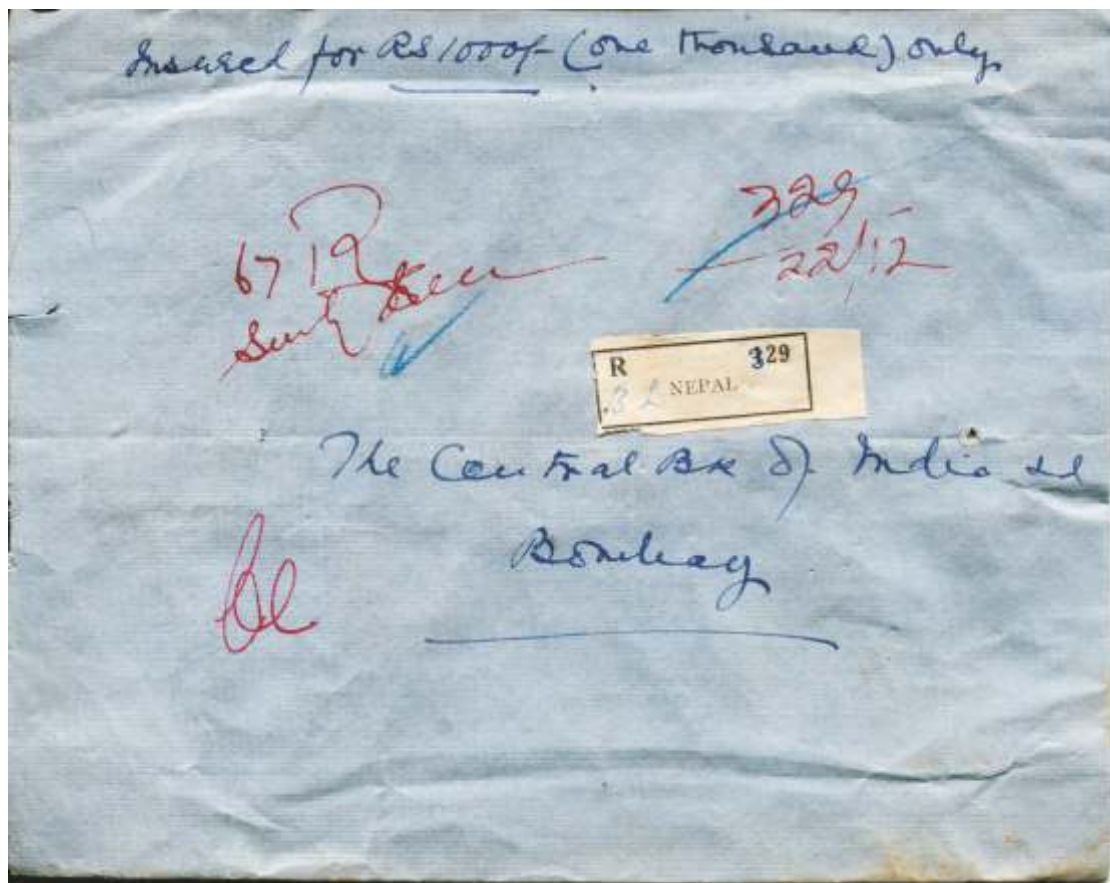 Insured for RS 1000/- (one thousand) only
329
67 R
22/12
R 329
NEPAL
The Central Bk of India Ld
Bombay